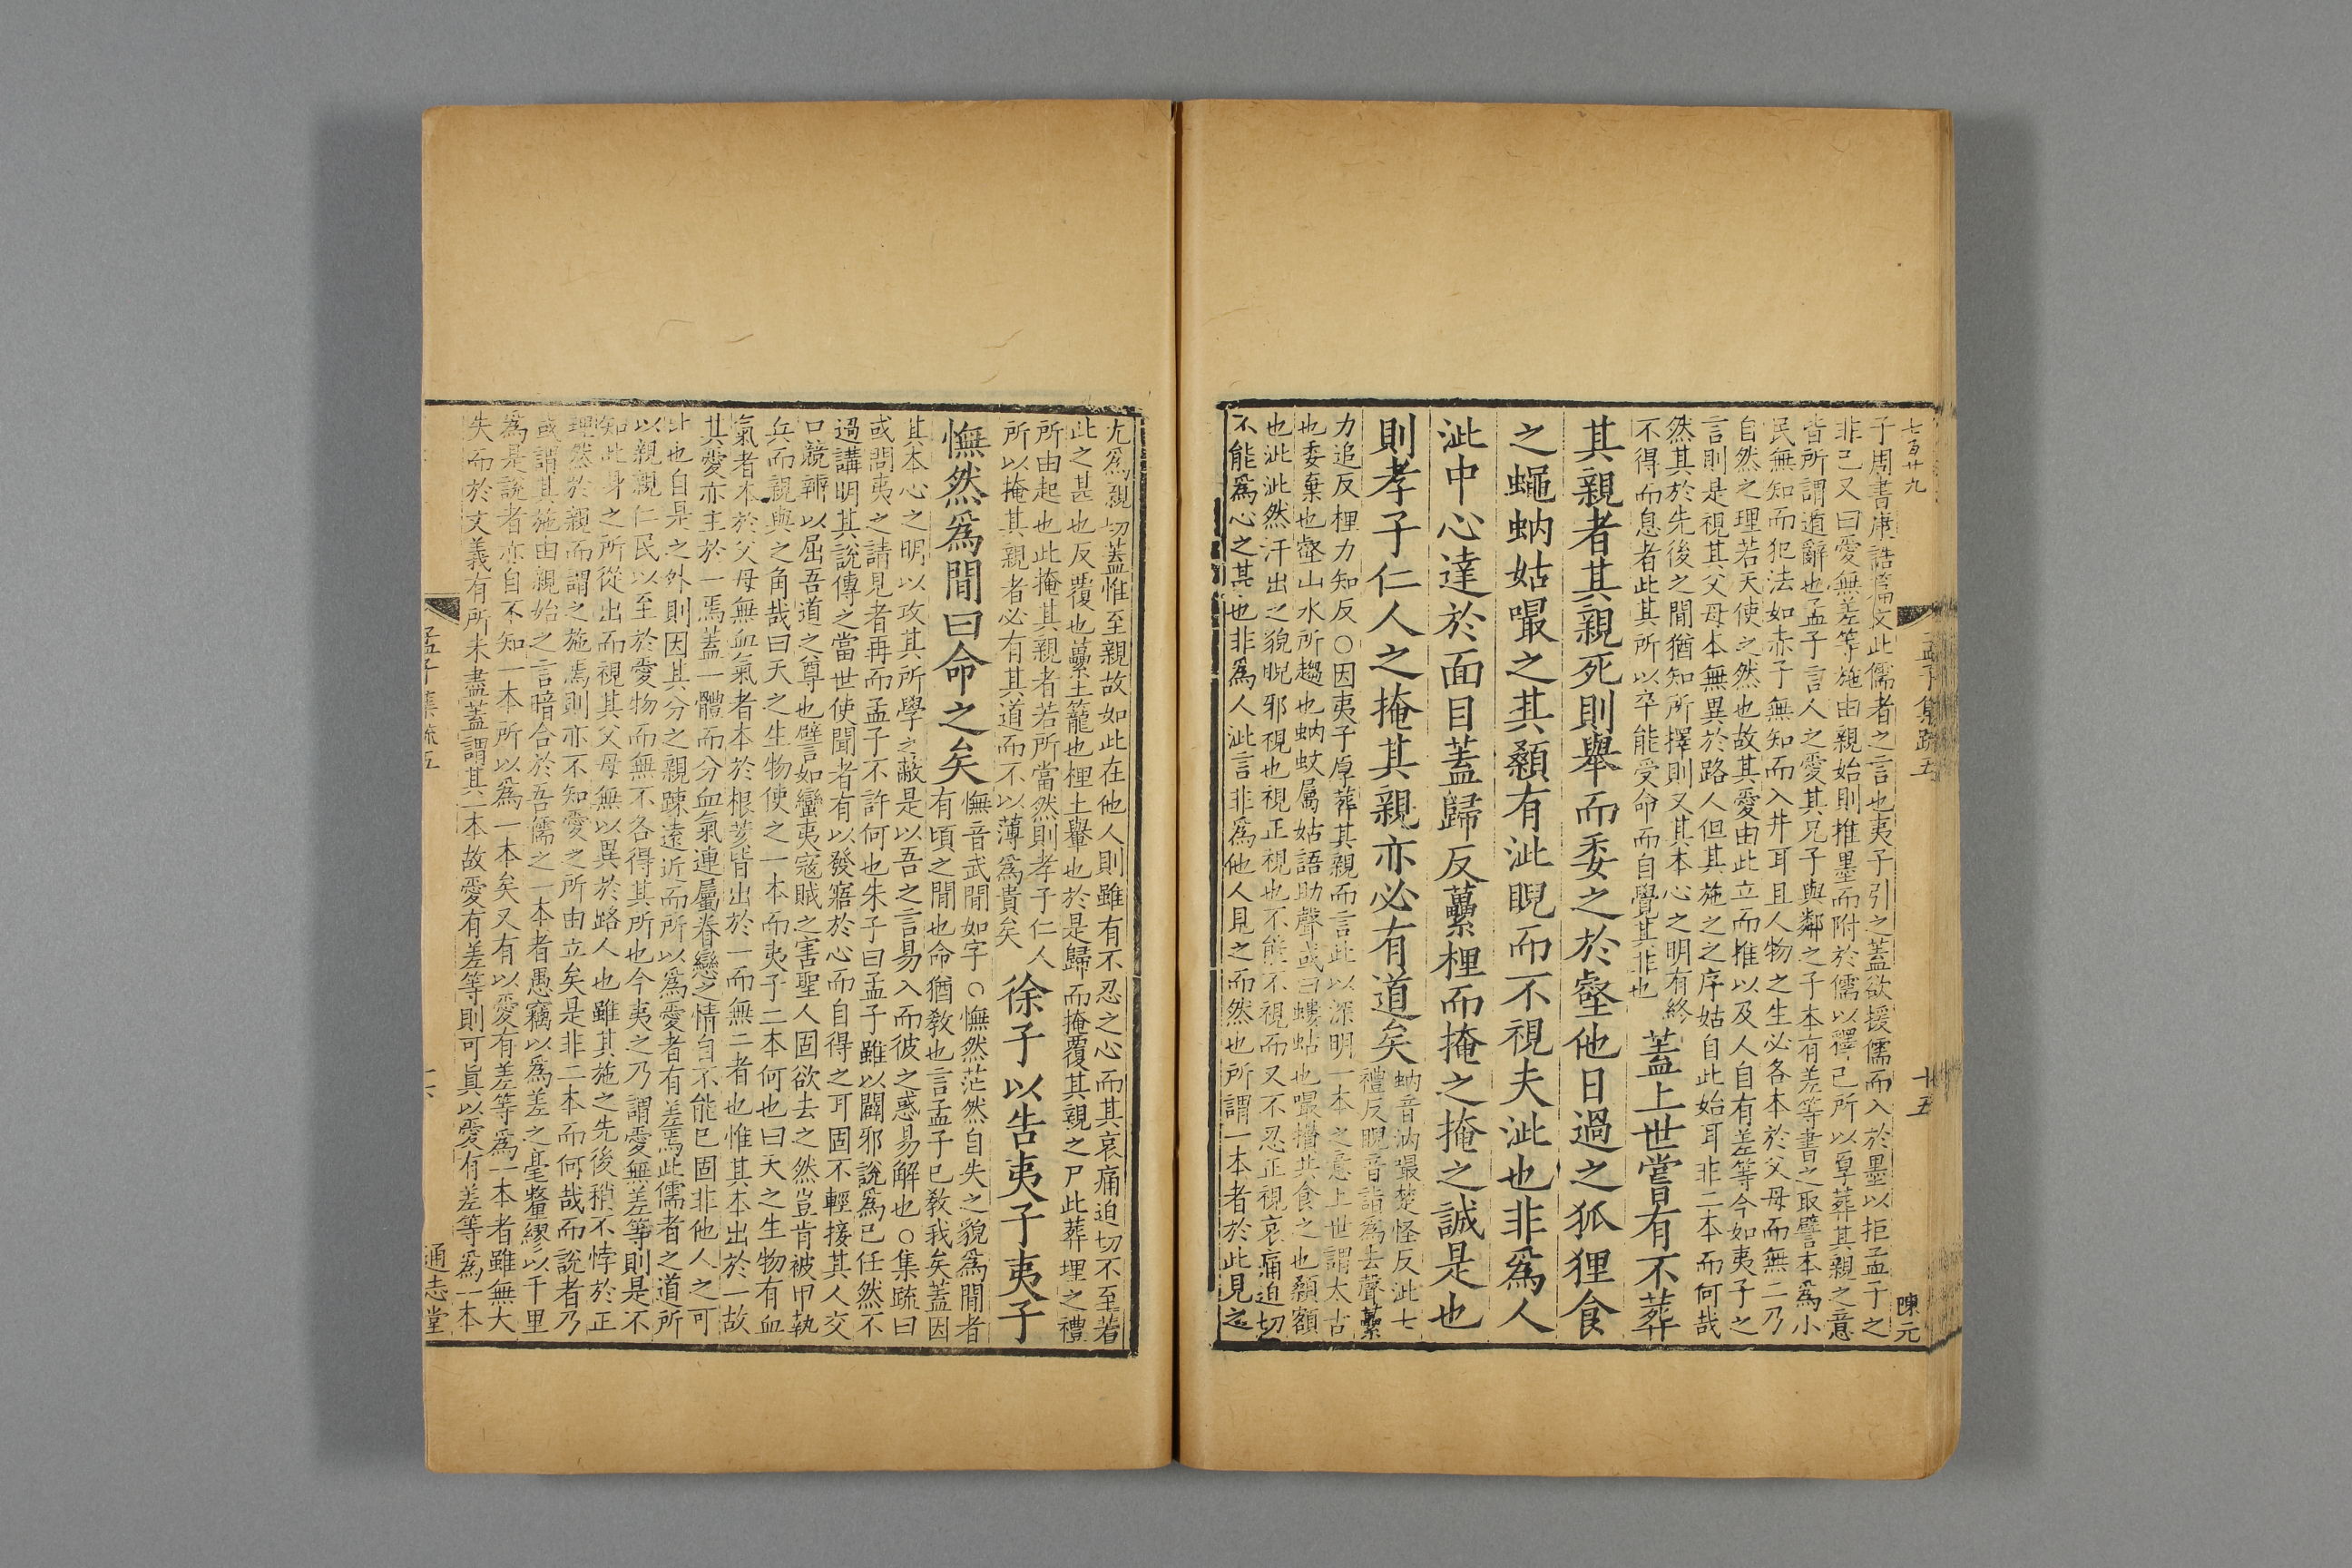 七百廿九
孟子集疏五
十五
陳元
子周書康誥篇文此儒者之言也夷子引之蓋欲援儒而入於墨以拒孟子之
非己又曰愛無差等施由親始則推墨而附於儒以釋己所以厚葬其親之意
皆所謂遁辭也孟子言人之愛其兄子與鄰之子本有差等書之取譬本爲小
民無知而犯法如赤子無知而入井耳且人物之生必各本於父母而無二乃
自然之理若天使之然也故其愛由此立而推以及人自有差等今如夷子之
言則是視其父母本無異於路人但其施之之序姑自此始耳非二本而何哉
然其於先後之閒猶知所擇則又其本心之明有終
不得而息者此其所以卒能受命而自覺其非也
蓋上世嘗有不葬
其親者其親死則舉而委之於壑他日過之狐狸食
之蠅蚋姑嘬之其顙有泚睨而不視夫泚也非爲人
泚中心達於面目蓋歸反虆梩而掩之掩之誠是也
則孝子仁人之掩其親亦必有道矣
蚋音汭嘬楚怪反泚七
禮反睨音詣爲去聲虆
力追反梩力知反○因夷子厚葬其親而言此以深明一本之意上世謂太古
也委棄也壑山水所趨也蚋蚊屬姑語助聲或曰螻蛄也嘬攢共食之也顙額
也泚泚然汗出之貌睨邪視也視正視也不能不視而又不忍正視哀痛迫切
不能爲心之甚也非爲人泚言非爲他人見之而然也所謂一本者於此見之
尤爲親切蓋惟至親故如此在他人則雖有不忍之心而其哀痛迫切不至若
此之甚也反覆也虆土籠也梩土轝也於是歸而掩覆其親之尸此葬埋之禮
所由起也此掩其親者若所當然則孝子仁人
所以掩其親者必有其道而不以薄爲貴矣
徐子以告夷子夷子
憮然爲閒曰命之矣
憮音武閒如字○憮然茫然自失之貌爲閒者
有頃之閒也命猶敎也言孟子已敎我矣蓋因
其本心之明以攻其所學之蔽是以吾之言易入而彼之惑易解也○集疏曰
或問夷之請見者再而孟子不許何也朱子曰孟子雖以闢邪說爲己任然不
過講明其說傳之當世使聞者有以發寤於心而自得之耳固不輕接其人交
口競辨以屈吾道之尊也譬如蠻夷寇賊之害聖人固欲去之然豈肯被甲執
兵而親與之角哉曰天之生物使之一本而夷子二本何也曰天之生物有血
氣者本於父母無血氣者本於根荄皆出於一而無二者也惟其本出於一故
其愛亦主於一焉蓋一體而分血氣連屬眷戀之情自不能已固非他人之可
比也自是之外則因其分之親踈遠近而所以爲愛者有差焉此儒者之道所
以親親仁民以至於愛物而無不各得其所也今夷之乃謂愛無差等則是不
知此身之所從出而視其父母無以異於路人也雖其施之先後稍不悖於正
理然於親而謂之施焉則亦不知愛之所由立矣是非二本而何哉而說者乃
或謂其施由親始之言暗合於吾儒之一本者愚竊以爲差之毫釐繆以千里
爲是說者亦自不知一本所以爲一本矣又有以愛有差等爲一本者雖無大
失而於文義有所未盡蓋謂其一本故愛有差等則可眞以愛有差等爲一本
孟子集疏五
通志堂